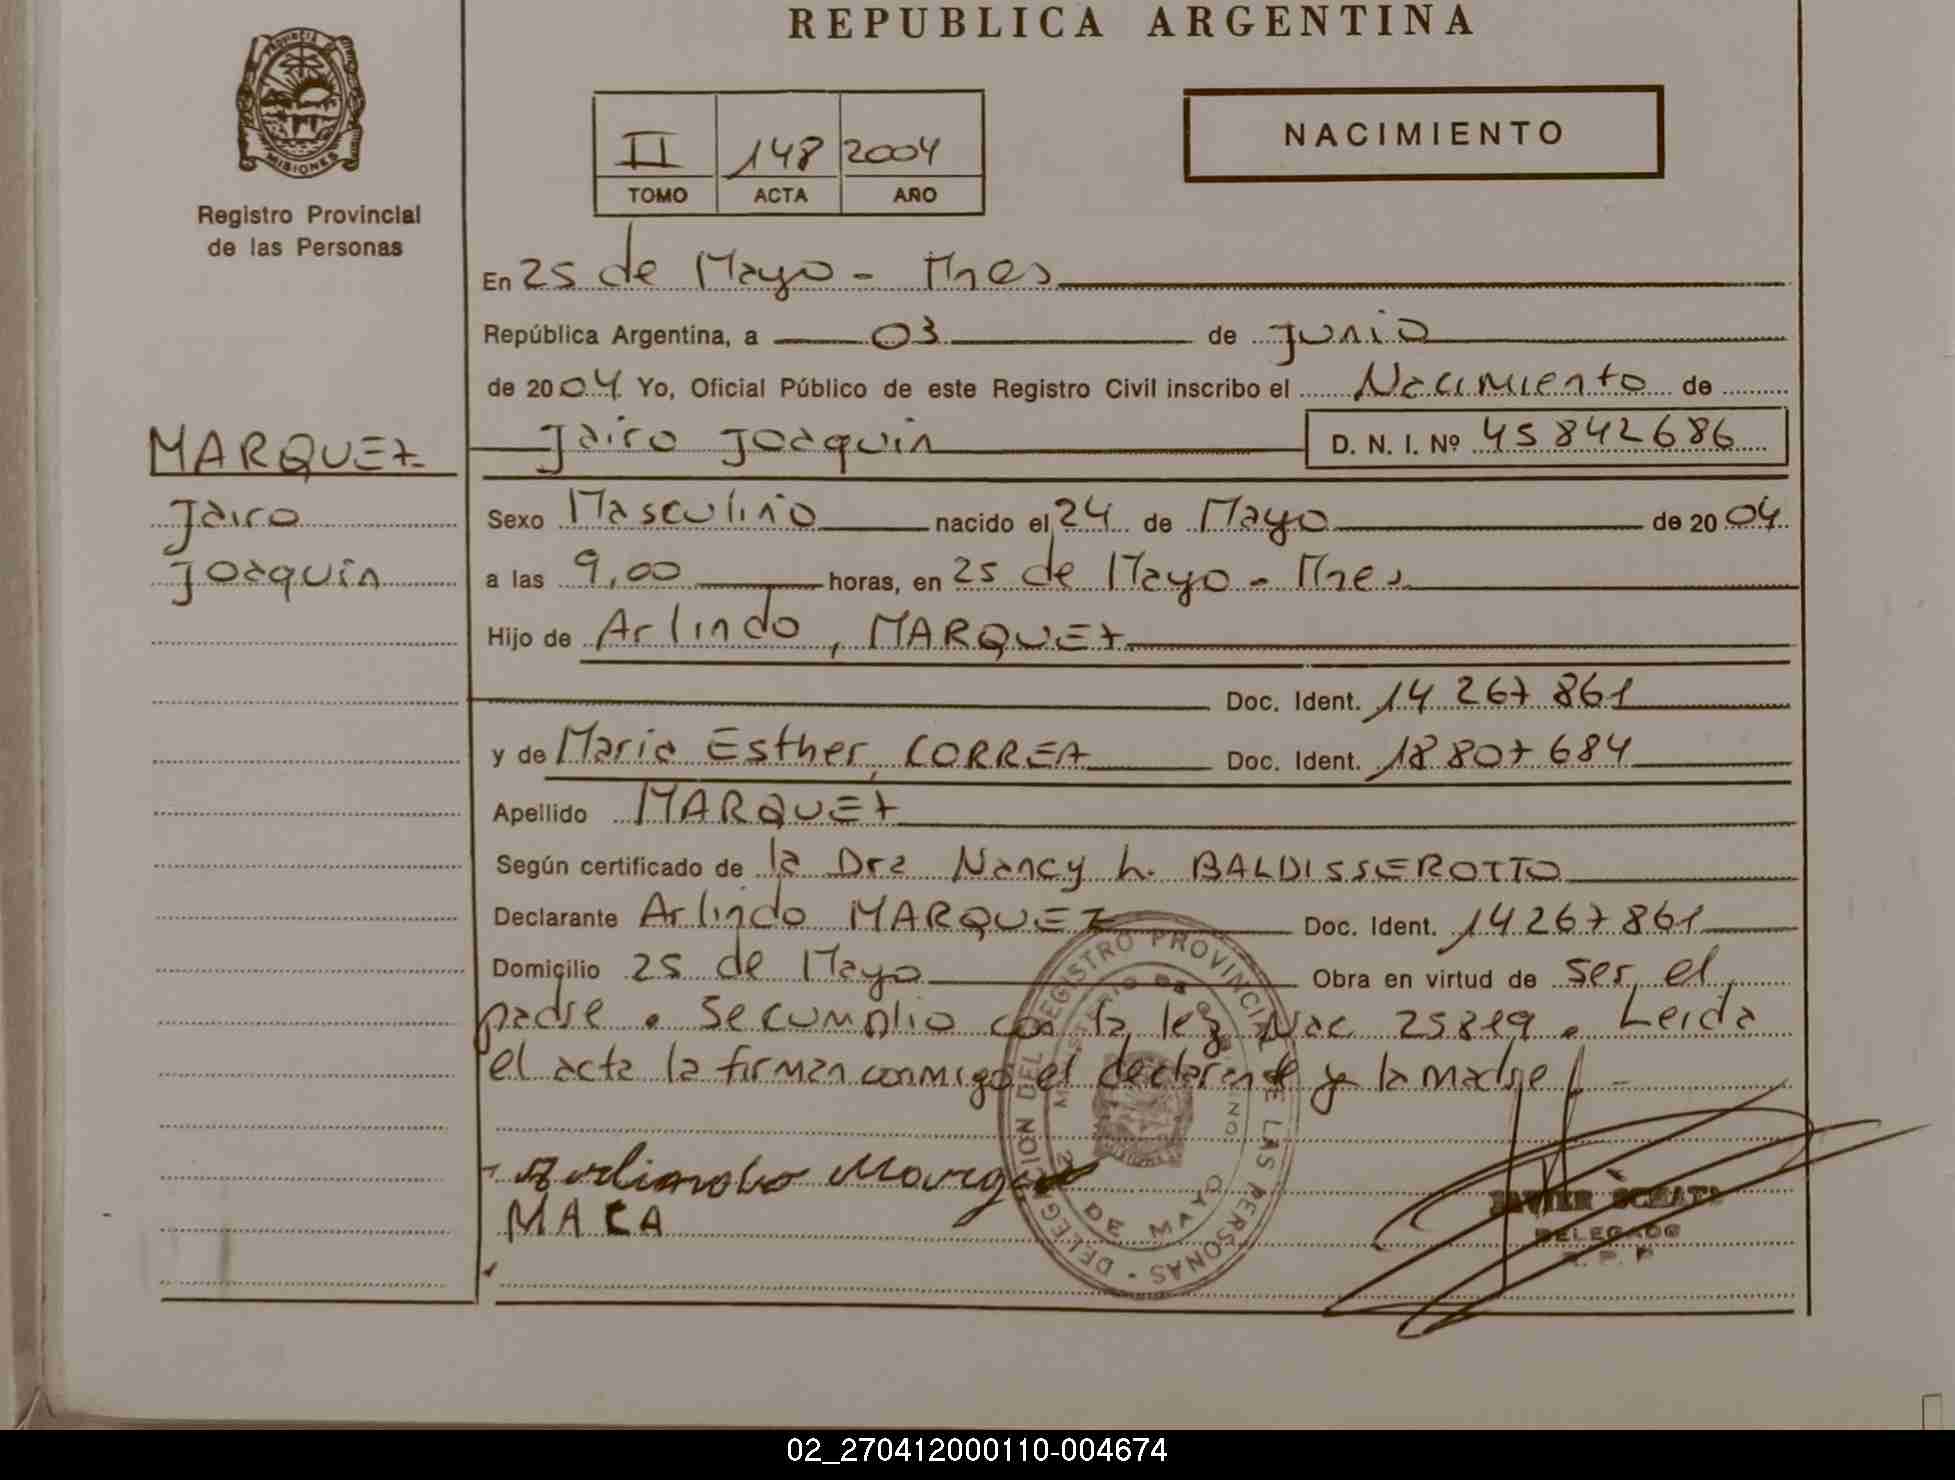 REPUBLICA ARGENTINA
PROVINCIA DE
MISIONES
Registro Provincial
de las Personas
II 148 2004
TOMO ACTA AÑO
NACIMIENTO
En 25 de Mayo - Mnes
República Argentina, a 03 de Junio
de 2004 Yo, Oficial Público de este Registro Civil inscribo el Nacimiento de
Jairo Joaquin D. N. I. Nº 45842686
MARQUEZ
Jairo
Joaquin
Sexo Masculino nacido el 24 de Mayo de 2004
a las 9,00 horas, en 25 de Mayo - Mnes
Hijo de Arlindo, MARQUEZ
Doc. Ident. 14 267 861
y de Maria Esther, CORREA Doc. Ident. 18 807 684
Apellido MARQUEZ
Según certificado de la Dra Nancy L. BALDISSEROTTO
Declarante Arlindo MARQUEZ Doc. Ident. 14 267 861
Domicilio 25 de Mayo Obra en virtud de ser el
padre. Se cumplio con la ley Nac 25819. Leida
el acta la firman conmigo el declarante y la madre. -
DELEGACION DEL REGISTRO PROVINCIAL DE LAS PERSONAS -
MINISTERIO DE GOBIERNO
25 DE MAYO
Arlindo Marques
MACA
JAVIER
DELEGADO
R. P. P.
02_270412000110-004674